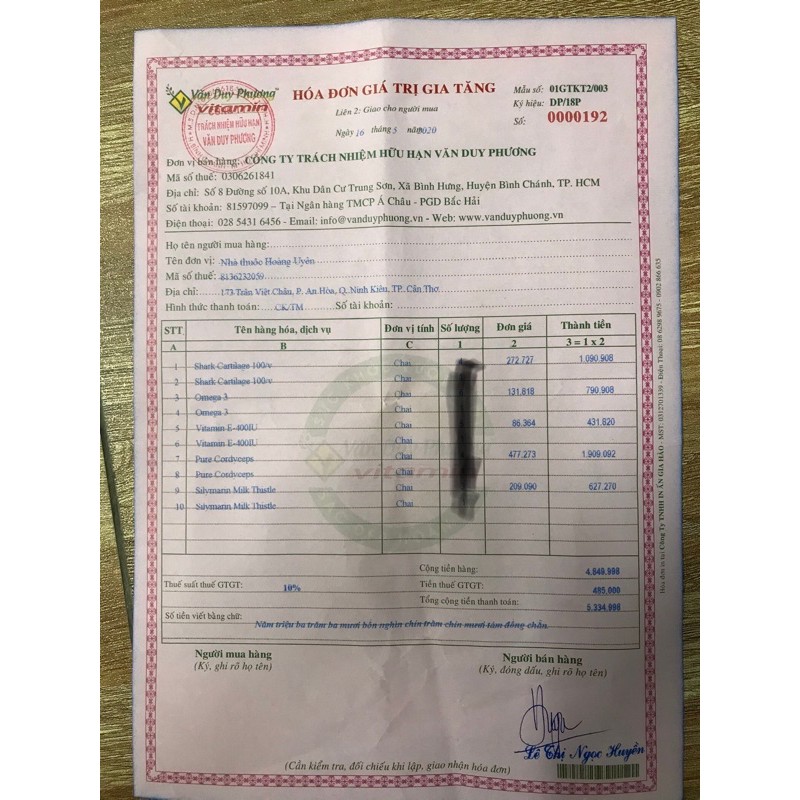 Văn Duy Phương
vitamin
TRÁCH NHIỆM HỮU HẠN
VĂN DUY PHƯƠNG
HÓA ĐƠN GIÁ TRỊ GIA TĂNG
Liên 2: Giao cho người mua
Ngày 16 tháng 5 năm 2020
Mẫu số: 01GTKT2/003
Ký hiệu: DP/18P
Số: 0000192
Đơn vị bán hàng: CÔNG TY TRÁCH NHIỆM HỮU HẠN VĂN DUY PHƯƠNG
Mã số thuế: 0306261841
Địa chỉ: Số 8 Đường số 10A, Khu Dân Cư Trung Sơn, Xã Bình Hưng, Huyện Bình Chánh, TP. HCM
Số tài khoản: 81597099 – Tại Ngân hàng TMCP Á Châu - PGD Bắc Hải
Điện thoại: 028 5431 6456 - Email: info@vanduyphuong.vn - Web: www.vanduyphuong.vn
Họ tên người mua hàng:
Tên đơn vị: Nhà thuốc Hoàng Uyên
Mã số thuế: 8136232059
Địa chỉ: 173 Trần Việt Châu, P. An Hòa, Q. Ninh Kiều, TP. Cần Thơ
Hình thức thanh toán: CK/TM Số tài khoản:
STT Tên hàng hóa, dịch vụ Đơn vị tính Số lượng Đơn giá Thành tiền
A B C 1 2 3 = 1 x 2
1 Shark Cartilage 100/v Chai 272.727 1.090.908
2 Shark Cartilage 100/v Chai
3 Omega 3 Chai 131.818 790.908
4 Omega 3 Chai
5 Vitamin E-400IU Chai 86.364 431.820
6 Vitamin E-400IU Chai
7 Pure Cordyceps Chai 477.273 1.909.092
8 Pure Cordyceps Chai
9 Silymarin Milk Thistle Chai 209.090 627.270
10 Silymarin Milk Thistle Chai
Cộng tiền hàng: 4,849,998
Thuế suất thuế GTGT: 10% Tiền thuế GTGT: 485,000
Tổng cộng tiền thanh toán: 5,334,998
Số tiền viết bằng chữ: Năm triệu ba trăm ba mươi bốn nghìn chín trăm chín mươi tám đồng chẵn.
Người mua hàng
(Ký, ghi rõ họ tên)
Người bán hàng
(Ký, đóng dấu, ghi rõ họ tên)
Lê Thị Ngọc Huyền
(Cần kiểm tra, đối chiếu khi lập, giao nhận hóa đơn)
Hóa đơn in tại Công Ty TNHH IN ẤN GIA HÀO - MST: 0312701339 - Điện Thoại: 08 6298 9675 - 0902 866 635